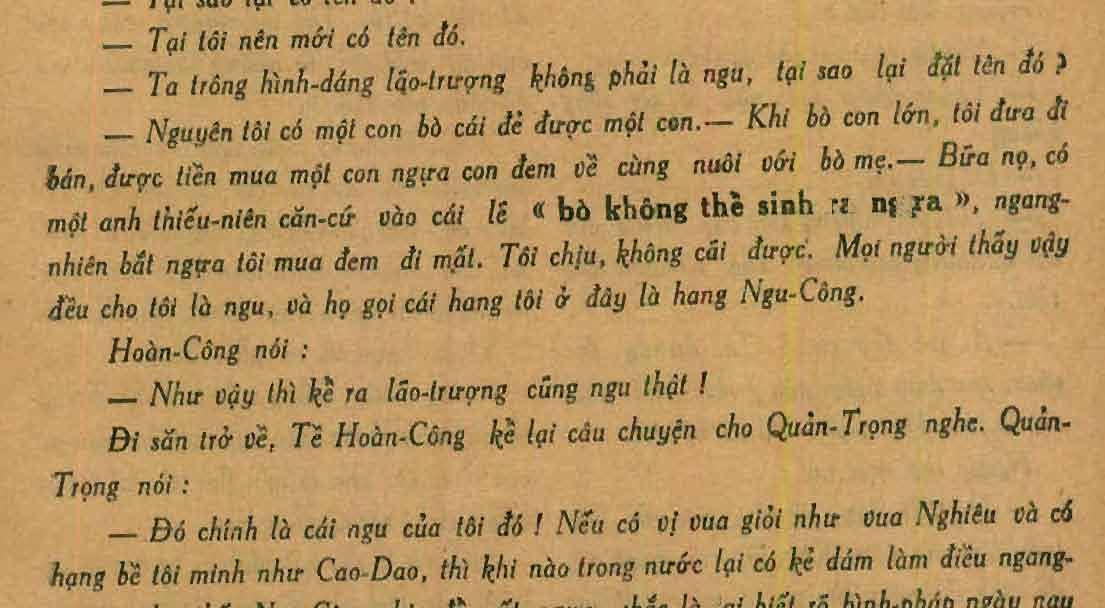 — Tại sao lại có tên đó ?
— Tại tôi nên mới có tên đó.
— Ta trông hình-dáng lão-trượng không phải là ngu, tại sao lại đặt tên đó ?
— Nguyên tôi có một con bò cái đẻ được một con.— Khi bò con lớn, tôi đưa đi
bán, được tiền mua một con ngựa con đem về cùng nuôi với bò mẹ.— Bữa nọ, có
một anh thiếu-niên căn-cứ vào cái lẽ « bò không thể sinh ra ngựa », ngang-
nhiên bắt ngựa tôi mua đem đi mất. Tôi chịu, không cãi được. Mọi người thấy vậy
đều cho tôi là ngu, và họ gọi cái hang tôi ở đây là hang Ngu-Công.
Hoàn-Công nói :
— Như vậy thì kể ra lão-trượng cũng ngu thật !
Đi săn trở về, Tề Hoàn-Công kể lại câu chuyện cho Quản-Trọng nghe. Quản-
Trọng nói :
— Đó chính là cái ngu của tôi đó ! Nếu có vị vua giỏi như vua Nghiêu và có
hạng bề tôi minh như Cao-Dao, thì khi nào trong nước lại có kẻ dám làm điều ngang-
biết rõ hình-pháp ngày nay